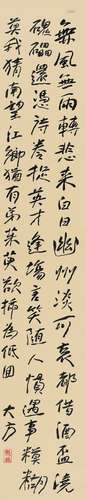 無風無雨轉悲來白日幽州淡似哀都借酒盃澆
磈磊還憑詩卷英才逢場言笑隨人慣遇事模糊
莫我猜南望江鄉猶有弟茱萸欲插為低回
大方